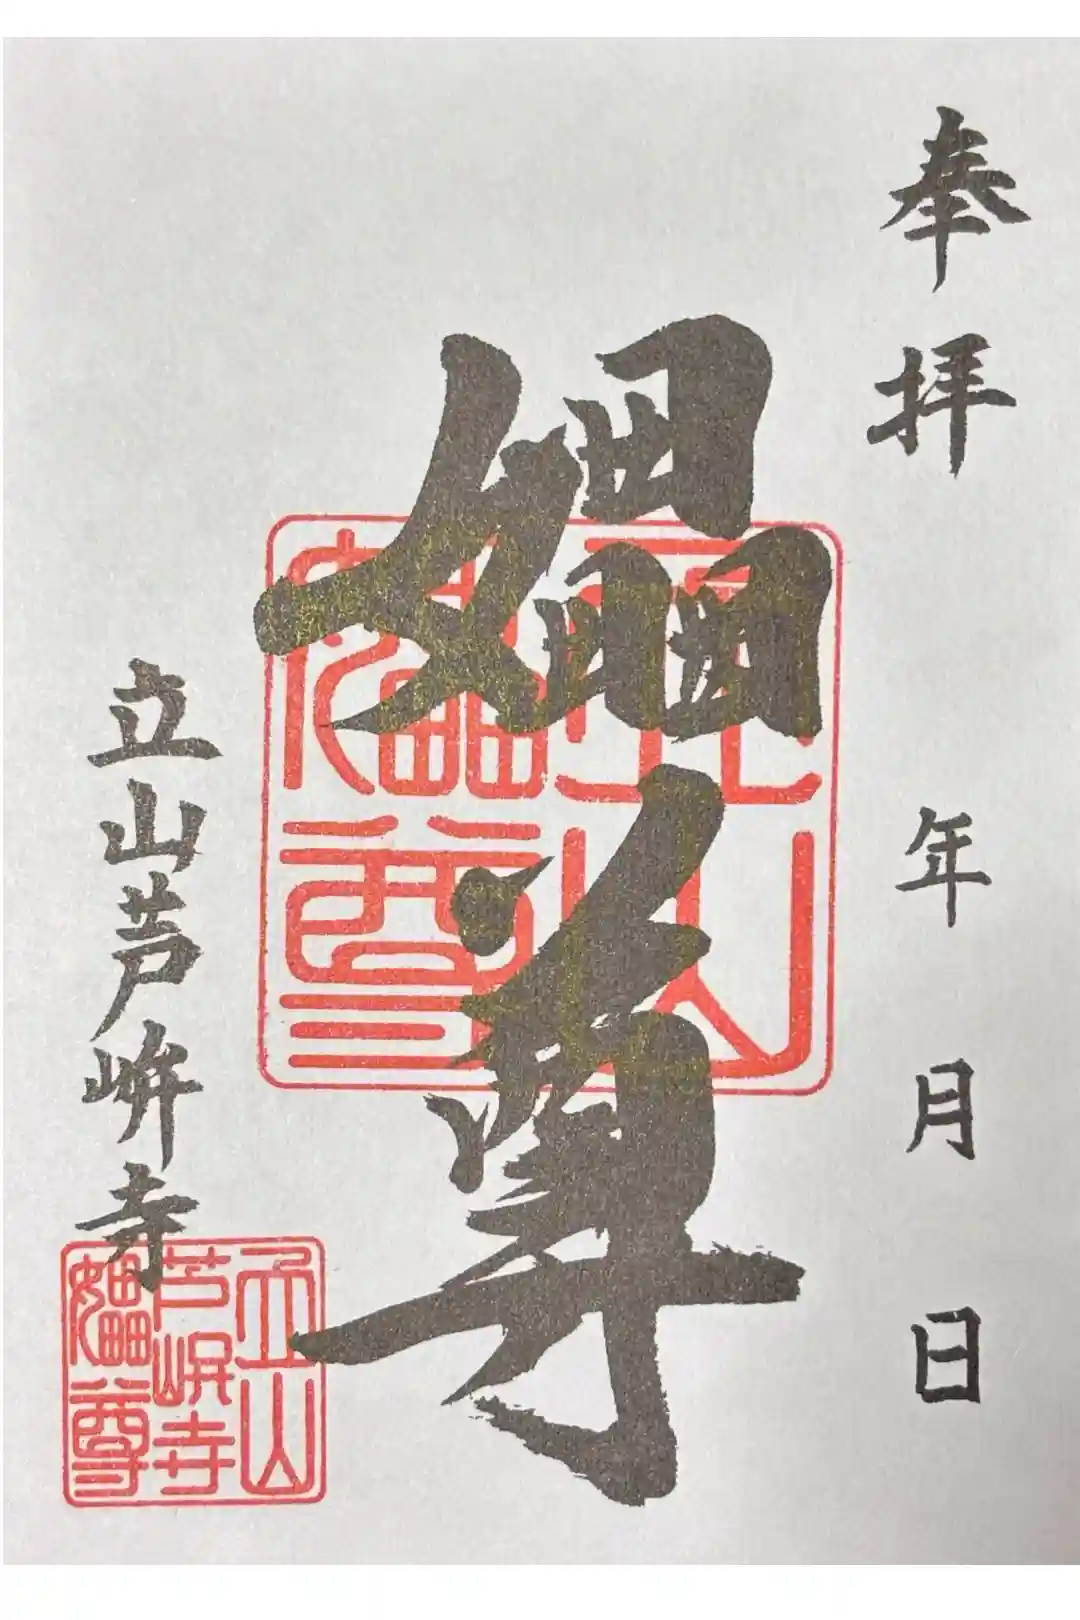 奉拝 年 月 日
尊
立山
尊
立山芦峅寺
立山
芦峅寺
尊